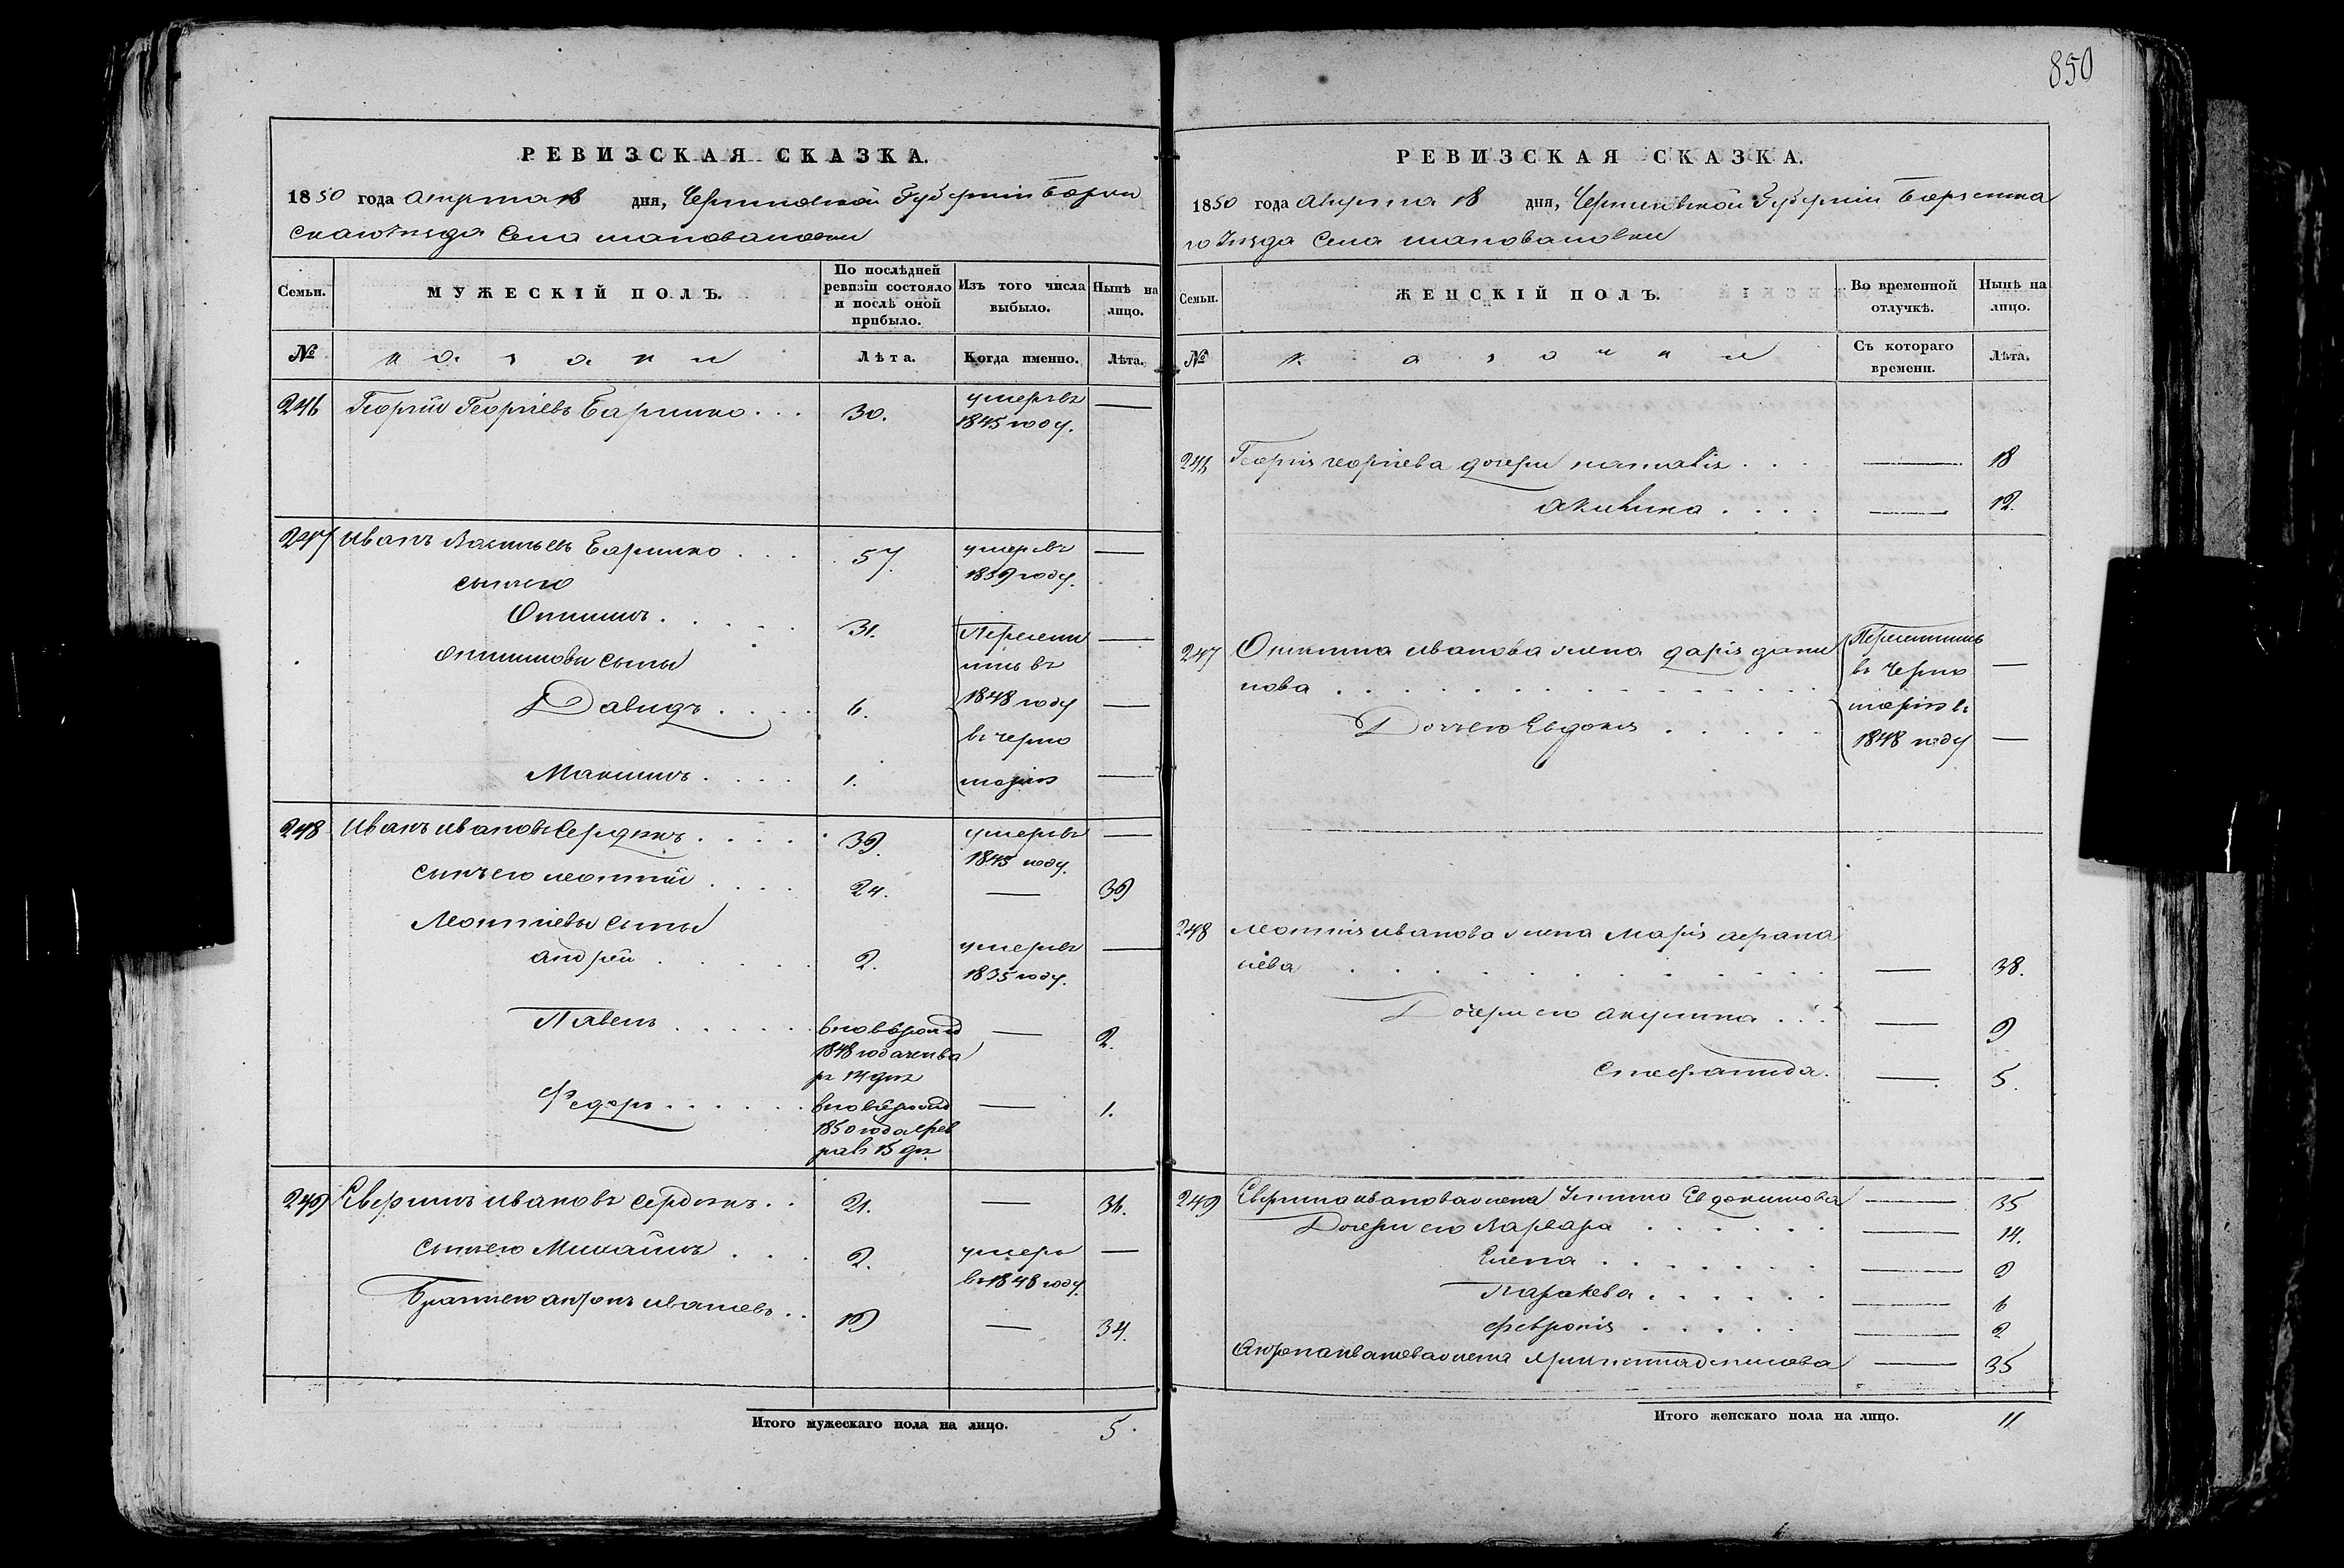 850
РЕВИЗСКАЯ СКАЗКА.
1850 года Апреля 18 дня, Черниговской Губернии Борзен
скаго уезда Села Шаповаловки
Семьи. МУЖЕСКІЙ ПОЛЪ. По послѣдней ревизіи состояло и послѣ оной прибыло. Изъ того числа выбыло. Нынѣ на лицо.
№ козаки Лѣта. Когда именно. Лѣта.
246 Георгій Георгіевъ 30. умеръ въ —
1845 году.
247 Иванъ Васильевъ 57. умеръ въ —
сынъ его 1839 году.
31. Пересели —
сыны лись въ
Давидъ 6. 1848 году —
въ черно
Максимъ 1. —
248 Иванъ Ивановъ Сердюкъ 39. умеръ въ —
1845 году.
сынъ его Леонтій 24. — 39
Леонтіевы сыны
Андрей 2. умеръ въ —
1835 году.
Павелъ вновь рожд — 2.
1848 года генва
ря 14 дня
Федоръ вновь рожд — 1.
1850 года фев
раля 15 дня
249 Ивановъ Сердюкъ 21. — 36.
сынъ его Михаилъ 2. умеръ —
въ 1848 году.
Братъ его Ивановъ 19 — 34.
Итого мужескаго пола на лицо. 5.
РЕВИЗСКАЯ СКАЗКА.
1850 года Апреля 18 дня, Черниговской Губерніи Борзенска
го уезда Села Шаповаловки
Семьи. ЖЕНСКІЙ ПОЛЪ. Во временной отлучкѣ. Нынѣ на лицо.
№ козачки Съ котораго времени. Лѣта.
246 Георгія Георгіева дочери Наталія — 18
Акилина — 12.
247 Иванова жена Дарія Дани Переселились —
лова въ Черно
морію въ
Дочь его Евдокія 1848 году —
248 Леонтія Иванова жена Марія Афана
сіева — 38.
Дочери его Акулина — 9
Степанида — 5.
249 Иванова жена Евдокимова — 35
Дочери его Варвара — 14.
Елена — 9
Параскева — 6
Февронія — 2
Иванова жена — 35
Итого женскаго пола на лицо. 11